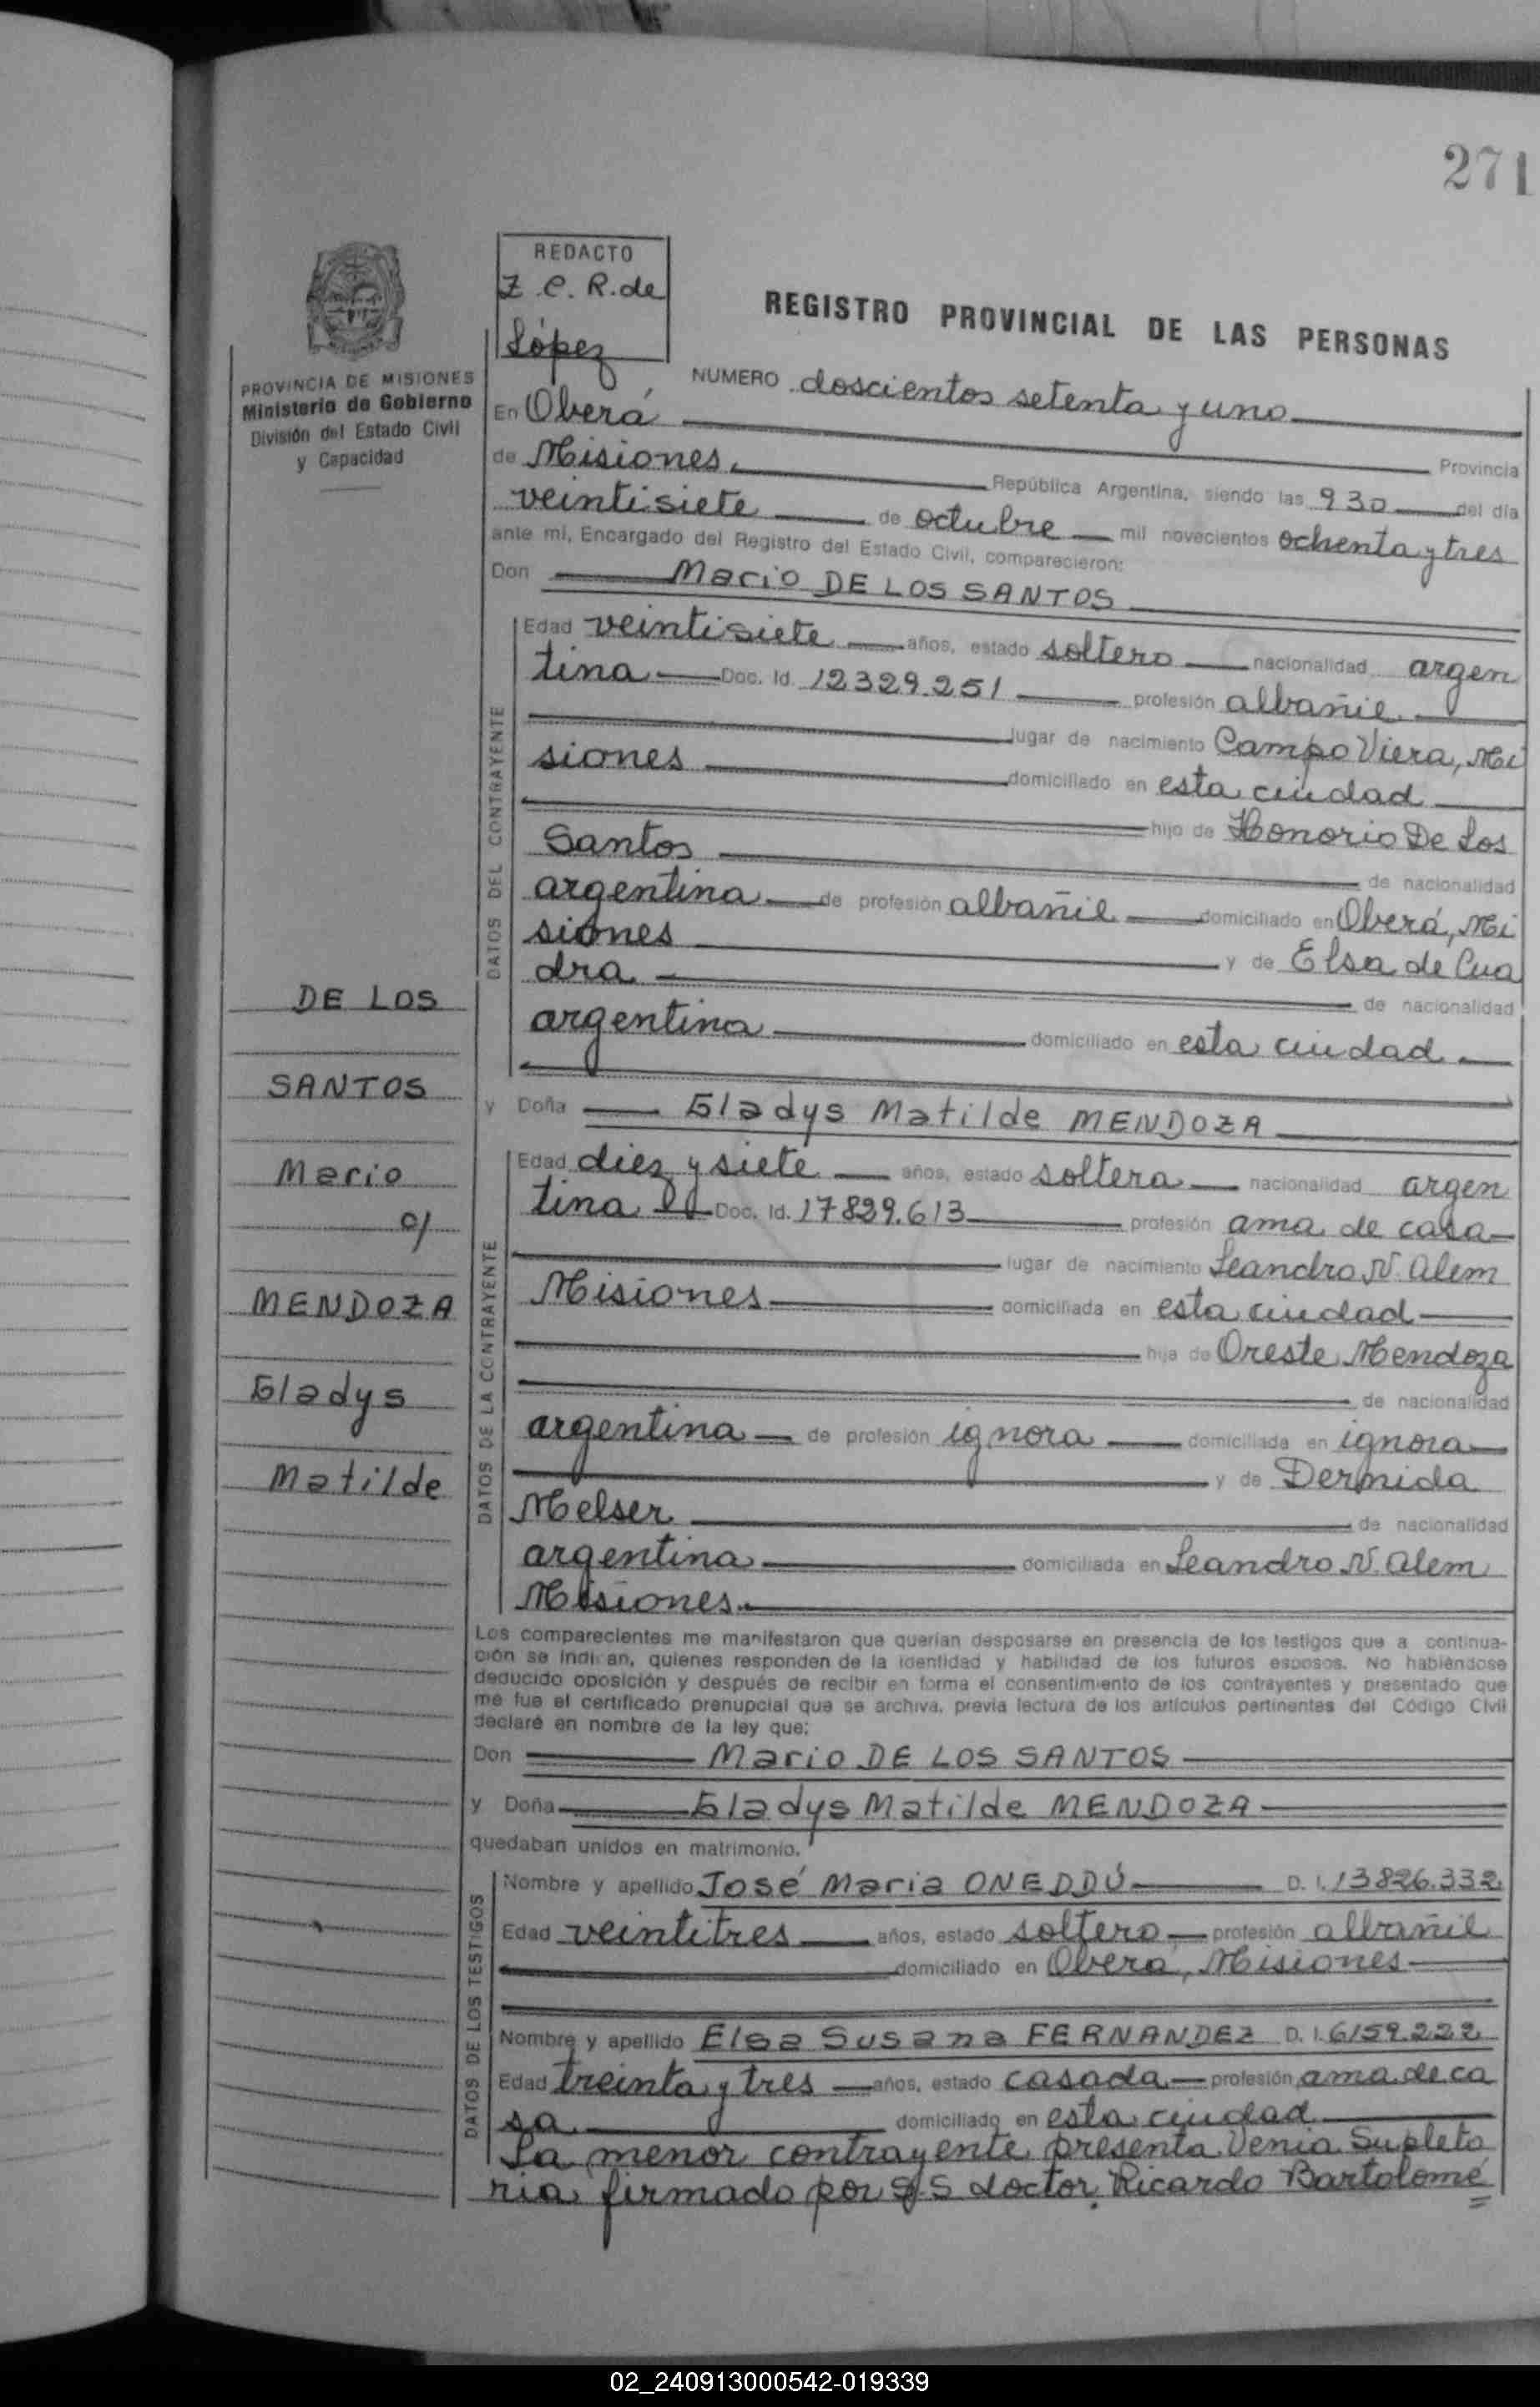 271
REDACTO
Z. C. R. de
López
REGISTRO PROVINCIAL DE LAS PERSONAS
PROVINCIA DE MISIONES
Ministerio de Gobierno
División del Estado Civil
y Capacidad
NUMERO doscientos setenta y uno
En Oberá
Provincia
de Misiones. República Argentina, siendo las 930 del día
veintisiete de octubre mil novecientos ochenta y tres
ante mi, Encargado del Registro del Estado Civil, comparecieron:
Don Mario DE LOS SANTOS
DATOS DEL CONTRAYENTE
Edad veintisiete años, estado soltero nacionalidad argen
tina Doc. Id. 12329.251 profesión albañil
lugar de nacimiento Campo Viera, Mi
siones domiciliado en esta ciudad
hijo de Honorio De Los
Santos
de nacionalidad
argentina de profesión albañil domiciliado en Oberá, Mi
siones
y de Elsa de Cua
dra
de nacionalidad
argentina domiciliado en esta ciudad
y Doña Gladys Matilde MENDOZA
DATOS DE LA CONTRAYENTE
Edad diez y siete años, estado soltera nacionalidad argen
tina Doc. Id. 17829.613 profesión ama de casa
lugar de nacimiento Leandro N. Alem
Misiones domiciliada en esta ciudad
hija de Oreste Mendoza
de nacionalidad
argentina de profesión ignora domiciliada en ignora
y de Dermida
Melser
de nacionalidad
argentina domiciliada en Leandro N. Alem
Misiones.
DE LOS
SANTOS
Mario
c/
MENDOZA
Gladys
Matilde
Los comparecientes me manifestaron que querían desposarse en presencia de los testigos que a continua-
ción se indican, quienes responden de la identidad y habilidad de los futuros esposos. No habiéndose
deducido oposición y después de recibir en forma el consentimiento de los contrayentes y presentado que
me fue el certificado prenupcial que se archiva, previa lectura de los artículos pertinentes del Código Civil
declaré en nombre de la ley que:
Don Mario DE LOS SANTOS
y Doña Gladys Matilde MENDOZA
quedaban unidos en matrimonio.
DATOS DE LOS TESTIGOS
Nombre y apellido José Maria ONEDDÚ D. I. 13826.332
Edad veintitres años, estado soltero profesión albañil
domiciliado en Oberá, Misiones
Nombre y apellido Elsa Susana FERNANDEZ D. I. 6159.222
Edad treinta y tres años, estado casada profesión ama de ca
sa domiciliado en esta ciudad
La menor contrayente presenta Venia Supleto
ria firmado por S.S doctor Ricardo Bartolomé
02_240913000542-019339